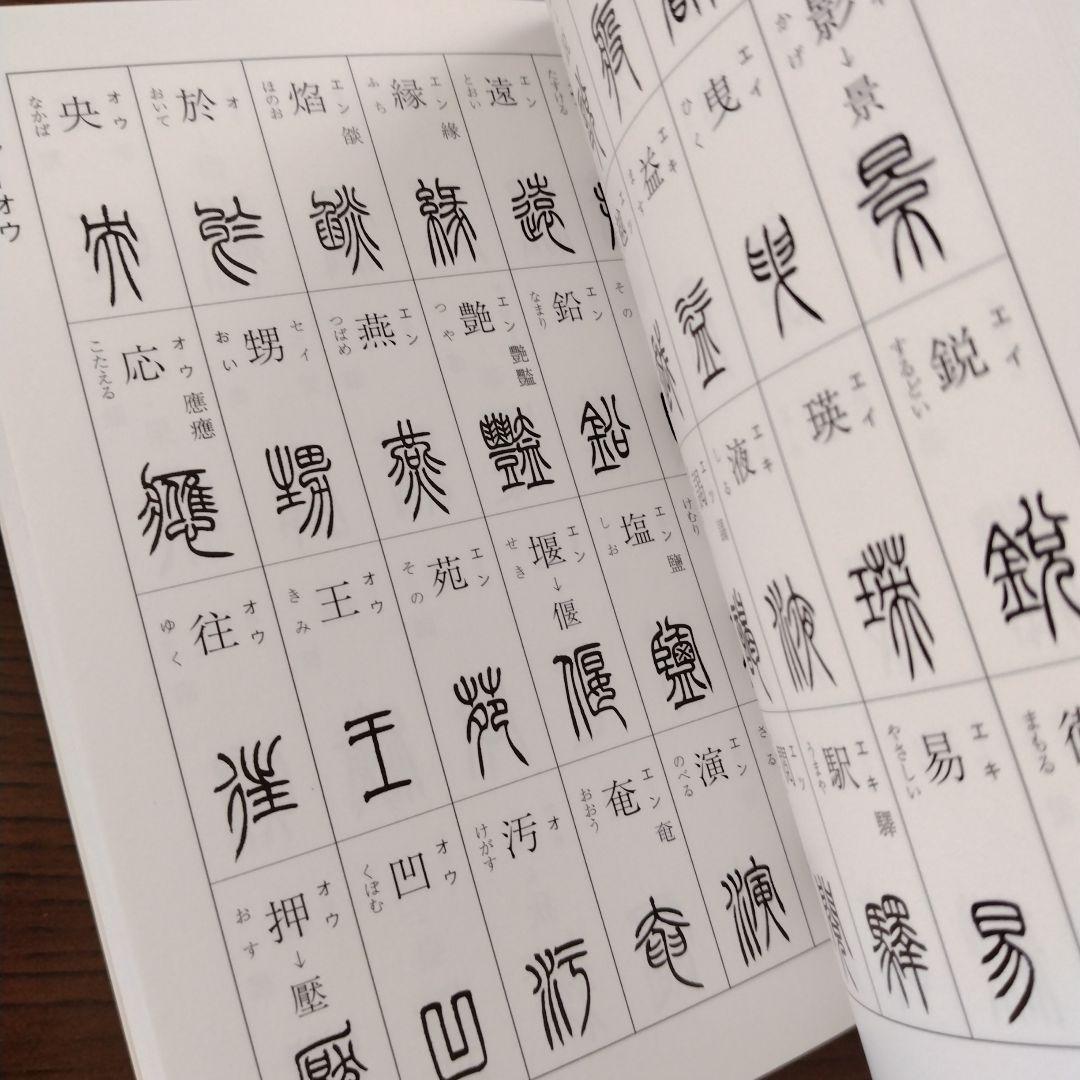 影 かげ
↓
景
曳 エイ ひく
益 エキ ます
鋭 エイ するどい
瑛 エイ
液 エキ しる
易 エキ やさしい
駅 エキ うまや
驛
まもる
たすける
遠 エン とおい
縁 エン ふち
緣
焔 エン ほのお
燄
於 オ おいて
央 オウ なかば
オウ
その
鉛 エン なまり
艶 エン つや
艷 豔
燕 エン つばめ
甥 セイ おい
応 オウ こたえる
應 癒
けむり
塩 エン しお
鹽
堰 エン せき
↓
偃
苑 エン その
王 オウ きみ
往 オウ ゆく
さる
演 エン のべる
奄 エン おおう
汚 オ けがす
凹 オウ くぼむ
押 オウ おす
↓
壓